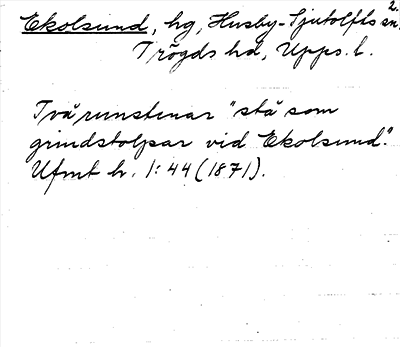 2.
Ekolsund, hg, Husby-Sjutolfts sn.
Trögds hd, Upps. l.
Två runstenar "stå som
grindstolpar vid Ekolsund."
Ufmt h. 1:44 (1871).